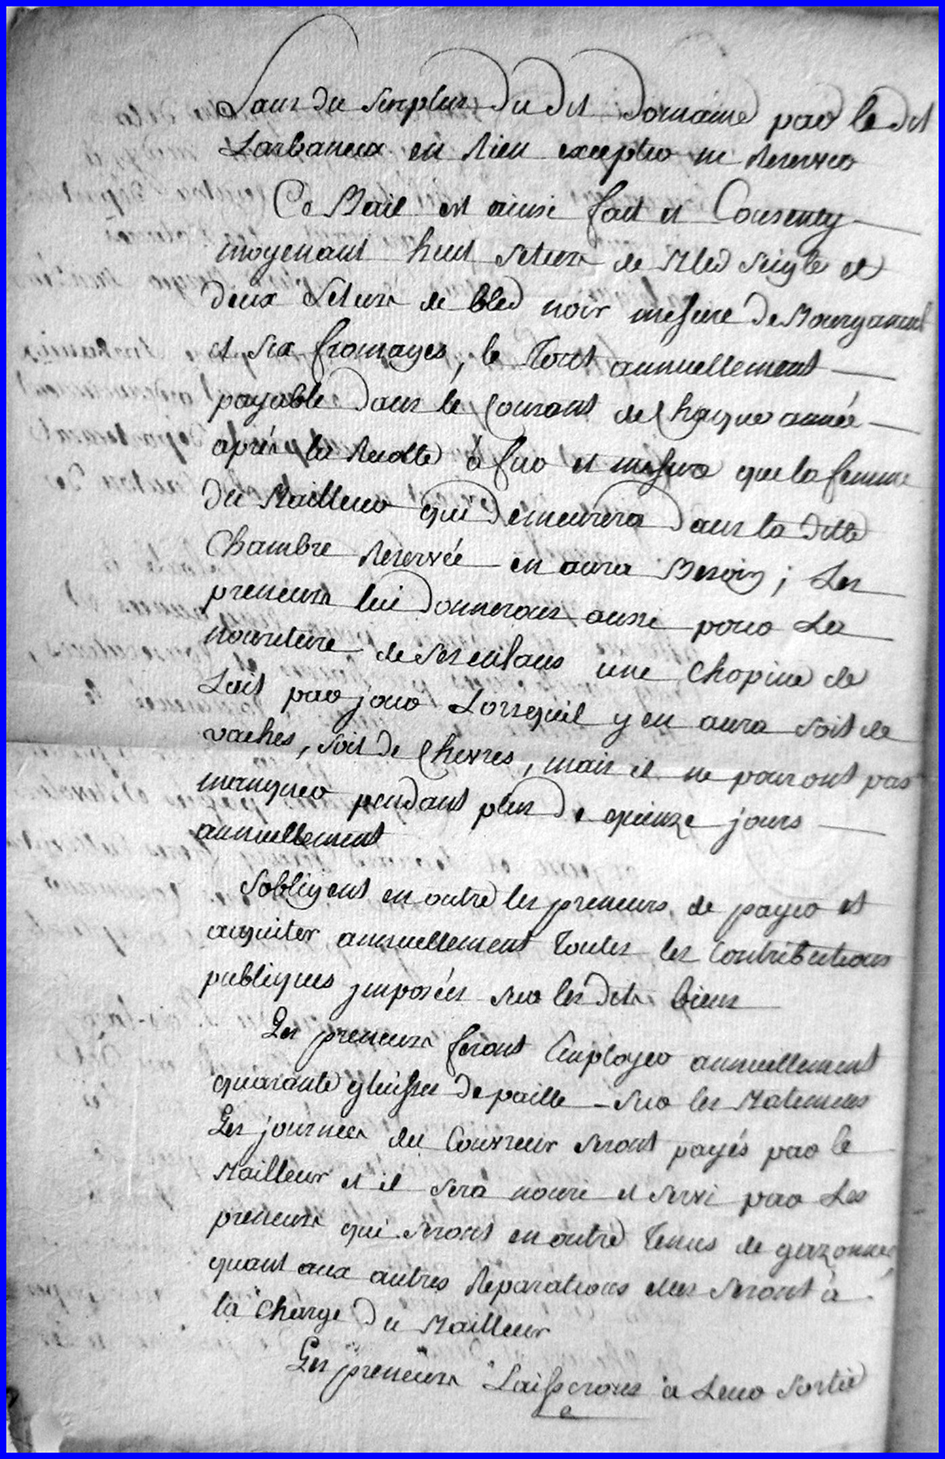 Sans du surplus du dit Domaine par le dit
Larbaneix en Rien excepter ni Reserver
Ce Bail est ainsi fait et Consenty
moyenant huit setiers de Bled seigle et
deux setiers de bled noir mesure de Bourganeuf
et six fromages, le Tout annuellement
payable dans le Courant de Chaque année
après la Recolte à fur et mesure que la femme
du Bailleur qui demeurera dans la ditte
Chambre Reservée en aura Besoin ; Les
preneurs lui donnerons aussi pour La
nouriture de ses enfans une Chopine de
Lait par jour Lorsqu'il y en aura soit de
vaches, soit de Chevres, mais il ne pouront pas
manquer pendant plus de quinze jours
annuellement
S'obligent en outre les preneurs de payer et
acquiter annuellement Toutes les Contributions
publiques jmposées sur les dits biens
Les preneurs feront Employer annuellement
quarante gluisses de paille - sur les Batiments
Les journées du Couvreur seront payés par le
Bailleur et il sera nouri et servi par Les
preneurs qui seront en outre Tenus de gazonner,
quant aux autres Reparations elles seront à
la Charge du Bailleur
Les preneurs Laisserons à Leur sortie